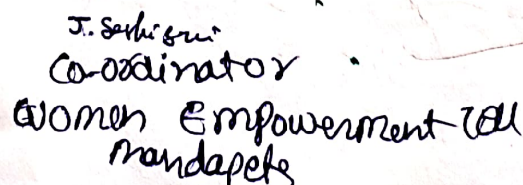 J. Seshisri
Co-ordinator
Women Empowerment Cell
Mandapeta